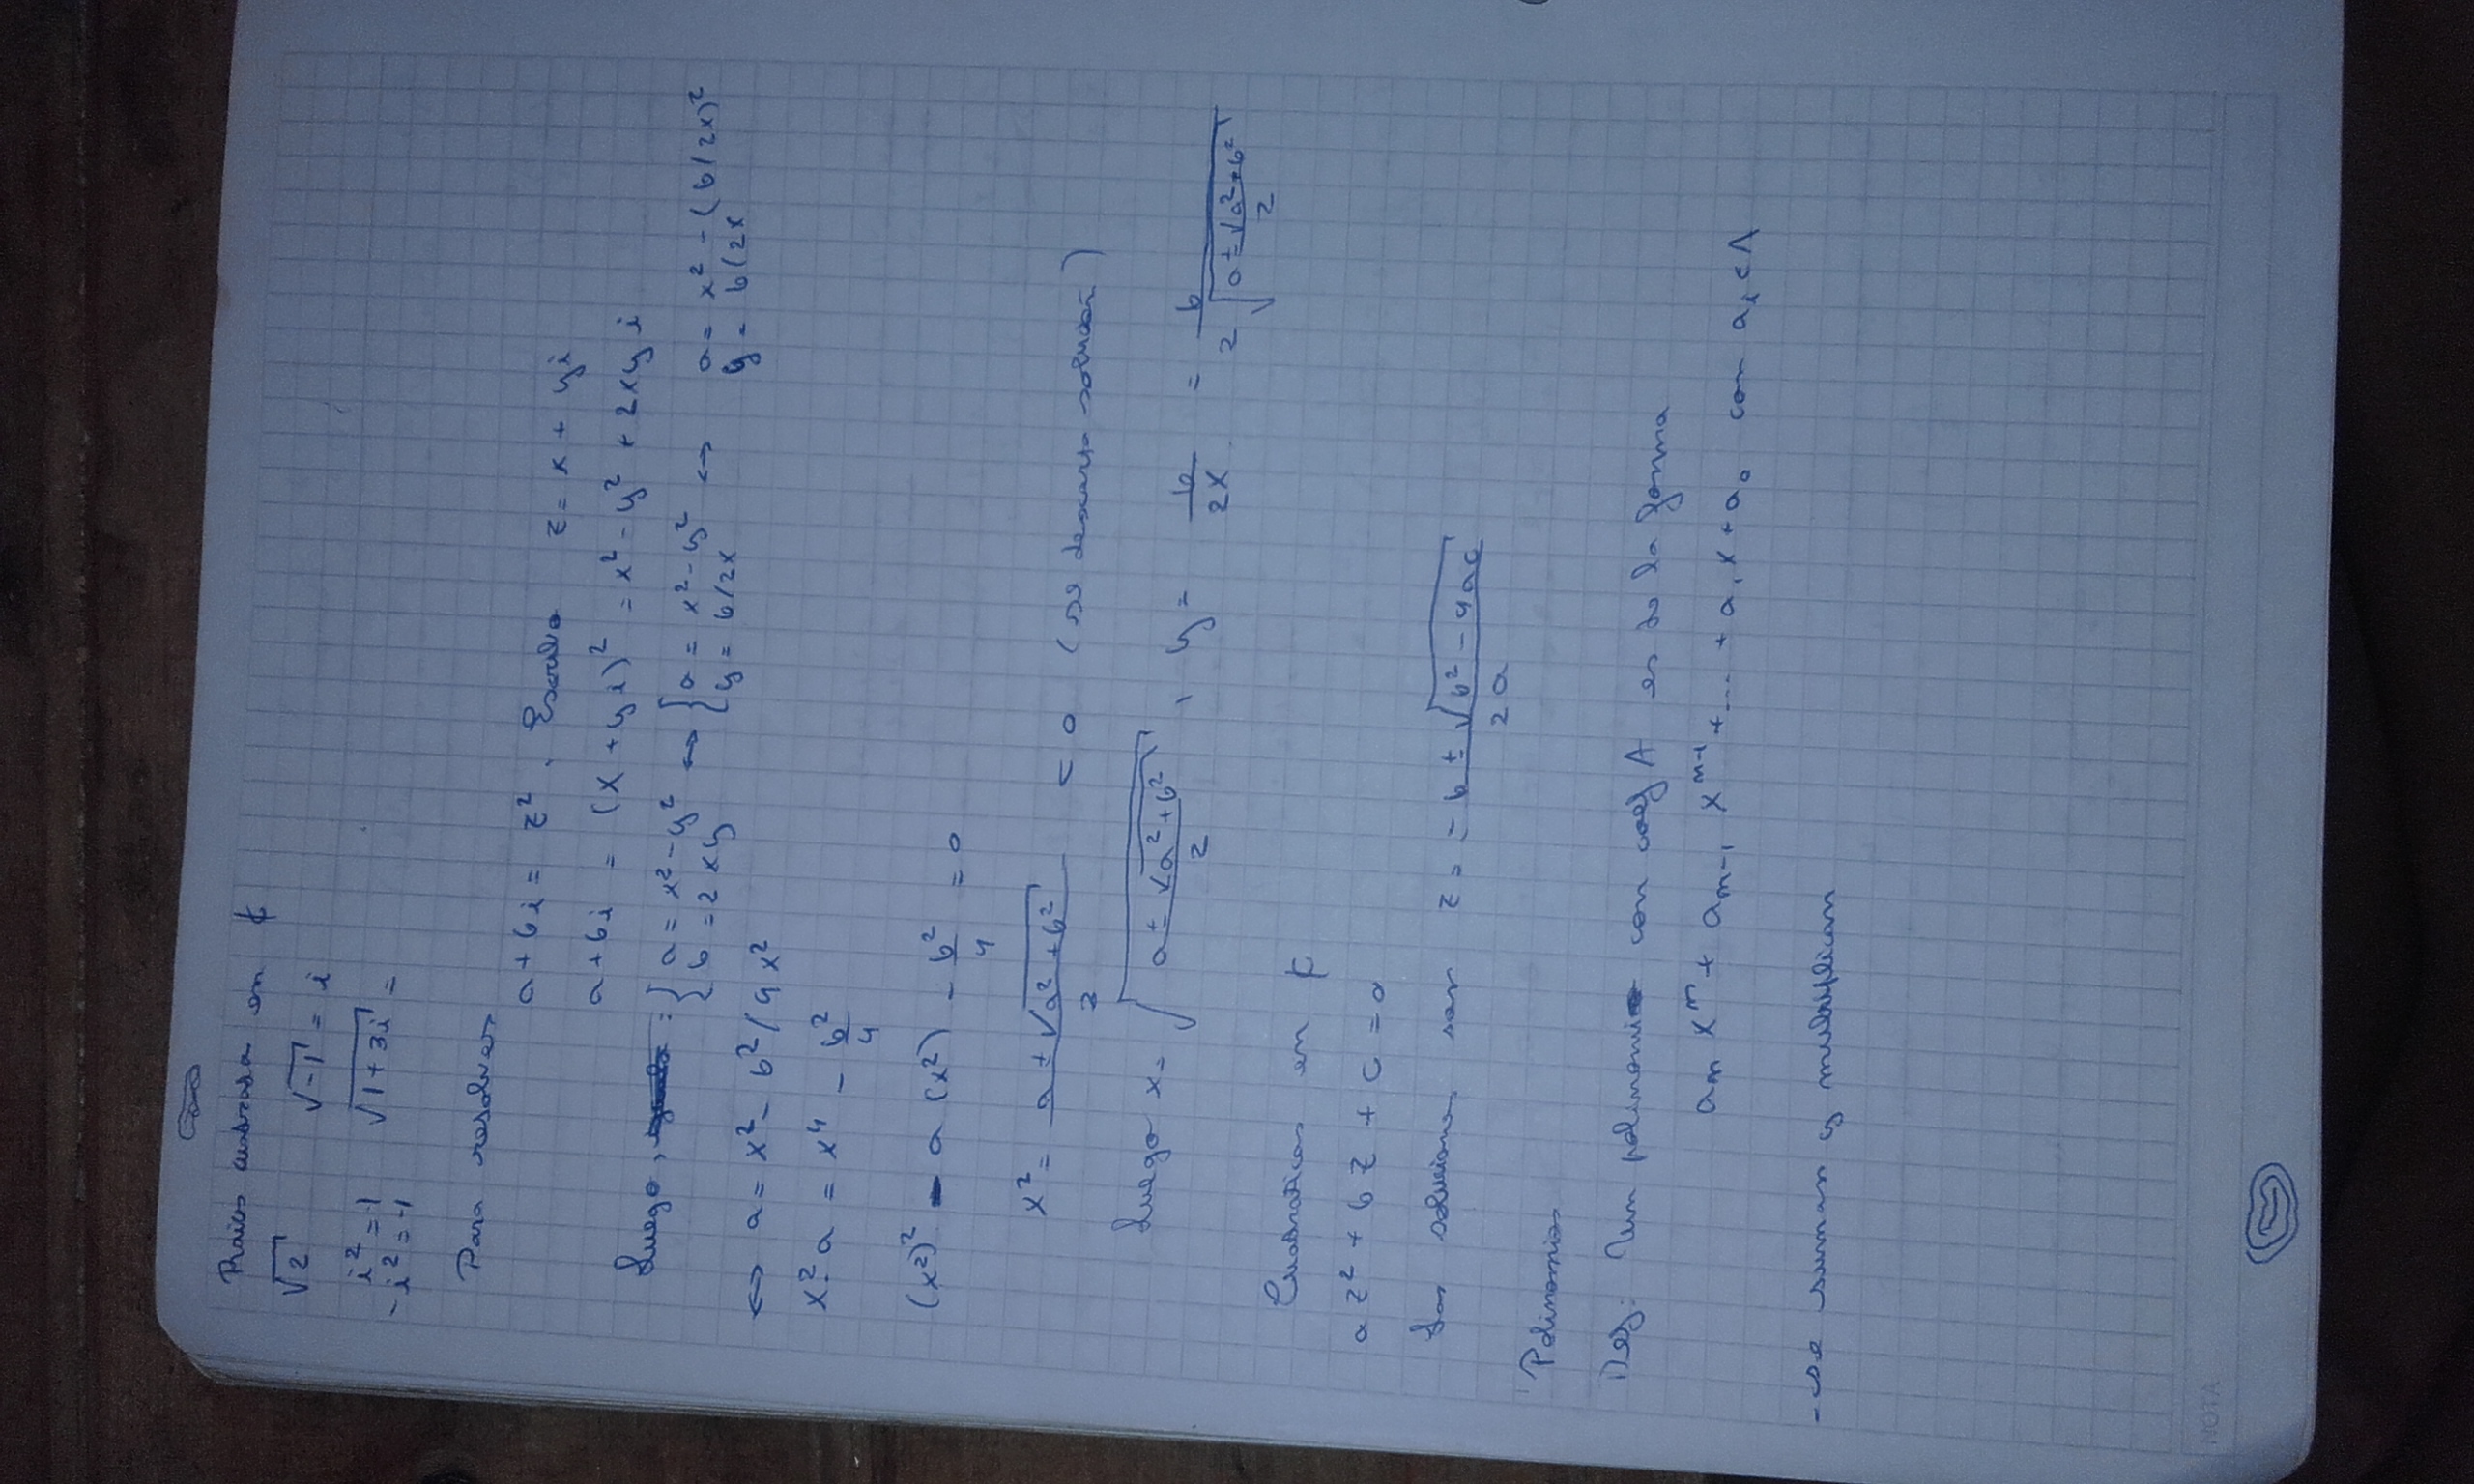 Raices cuadradas en ℂ
√2 √-1 = i
i² = -1 √1+3i =
-i² = -1
Para resolver
a + bi = z². Escribo z = x + yi
a + bi = (x + yi)² = x² - y² + 2xyi
Luego, : { a = x² - y² ↔ { a = x² - y² ↔ a = x² - (b/2x)²
b = 2xy y = b/2x y = b/2x
↔ a = x² - b²/4x²
x²·a = x⁴ - b²/4
(x²)² - a(x²) - b²/4 = 0
x² = (a ± √a² + b²)/2 < 0 (se descarta solución)
Luego x = √((a ± √a² + b²)/2), y = b/2x = b/(2√((a ± √a² + b²)/2))
Cuadraticas en ℂ
az² + bz + c = 0
Las soluciones son z = (-b ± √b² - 4ac)/2a
Polinomios
Def: Un polinomio con coef A es de la forma
aₙxⁿ + aₙ₋₁ xⁿ⁻¹ + ... + a₁x + a₀ con aᵢ ∈ A
- se suman y multiplican
NOTA